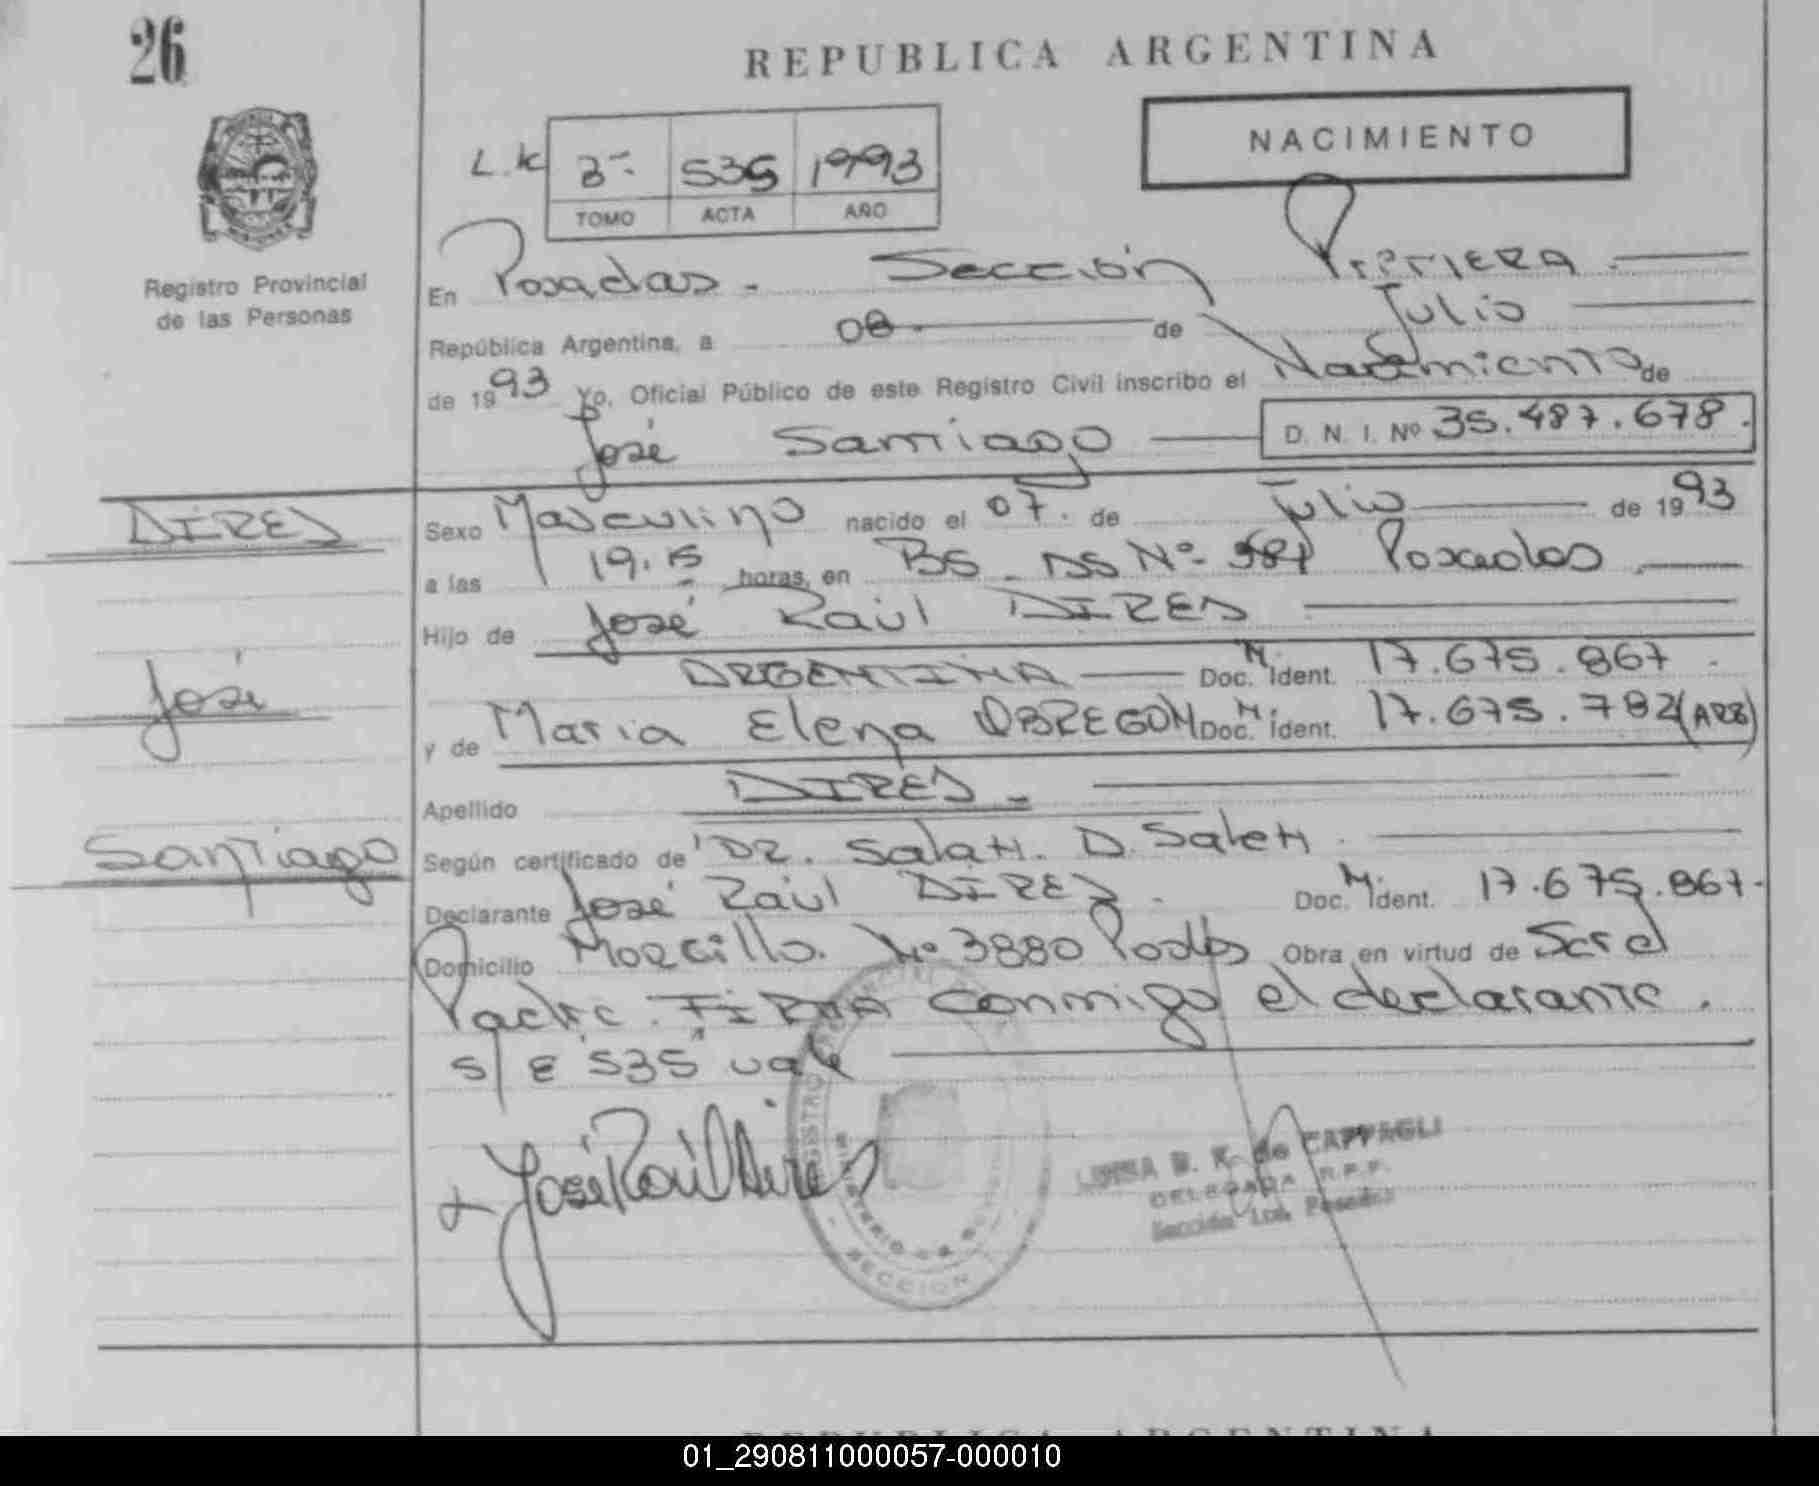 26
REPUBLICA ARGENTINA
NACIMIENTO
3- 535 1993
TOMO ACTA AÑO
Registro Provincial
de las Personas
En Posadas. Sección Primera.
República Argentina, a 08 de Julio
de 1993 Yo, Oficial Público de este Registro Civil inscribo el Nacimiento de
José Santiago D. N. I. Nº 35.487.678.
DIRES
José
Santiago
Sexo Masculino nacido el 07. de Julio de 1993
a las 19.15 horas, en Posadas
Hijo de José Raúl DIRES
ARGENTINA Doc. M. Ident. 17.675.867
y de Maria Elena OBREGON Doc. M. Ident. 17.675.782 (ARG)
Apellido DIRES.
Según certificado de DR. Salah. D. Saleh
Declarante José Raúl DIRES. Doc. M. Ident. 17.675.867.
Domicilio Morcillo. Nº 3880 Posdas Obra en virtud de Ser el
Padre. FIRMA conmigo el declarante.
S/E "535" vale
José Raúl Dires
REGISTRO
MINISTERIO DE
SECCION
LUISA B. K. de CAPPAGLI
DELEGADA R.P.P.
Sección 1ra. Posadas
REPUBLICA ARGENTINA
01_290811000057-000010